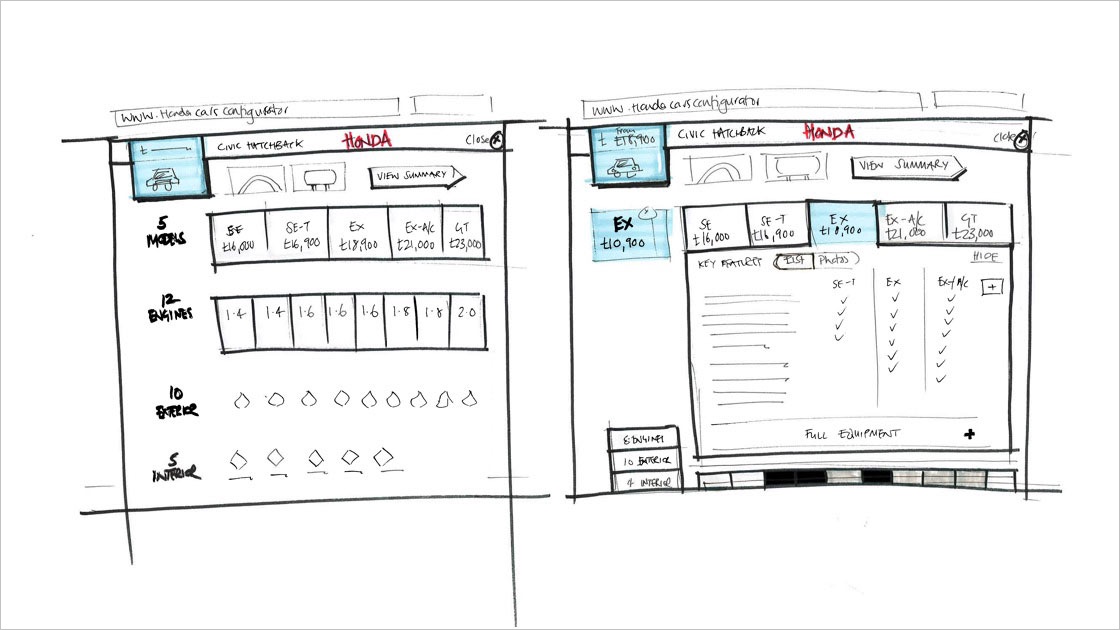 www.Honda cars configurator
£
CIVIC HATCHBACK
HONDA
Close X
VIEW SUMMARY
5 MODELS
SE £16,000
SE-T £16,900
EX £18,900
EX-A/C £21,000
GT £23,000
12 ENGINES
1.4 1.4 1.6 1.6 1.6 1.8 1.8 2.0
10 EXTERIOR
5 INTERIOR
www.Honda cars configurator
from £18,900
CIVIC HATCHBACK
HONDA
Close X
VIEW SUMMARY
EX £10,900
SE £16,000
SE-T £16,900
EX £18,900
EX-A/C £21,000
GT £23,000
KEY FEATURES LIST Photos
HIDE
SE-T EX EX-A/C +
FULL EQUIPMENT +
8 ENGINES
10 EXTERIOR
4 INTERIOR